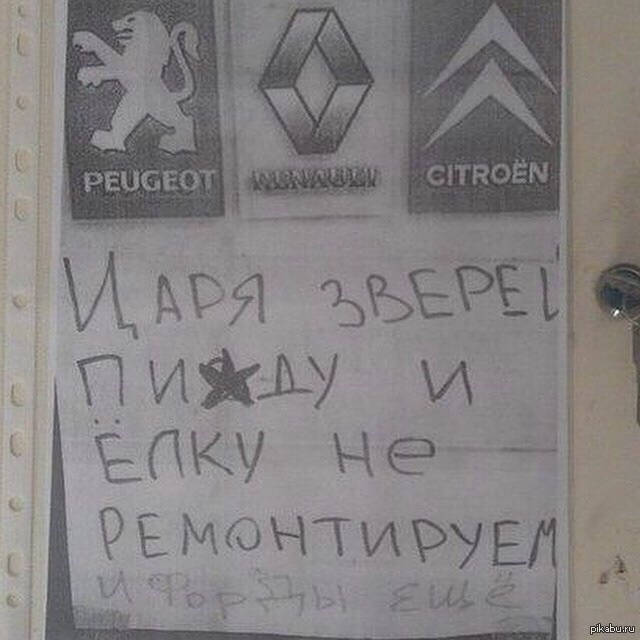 PEUGEOT RENAULT CITROËN
ЦАРЯ ЗВЕРЕЙ
ПИ★ДУ И
ЁЛКУ Не
РЕМОНТИРУЕМ
и Форды ещё
pikabu.ru